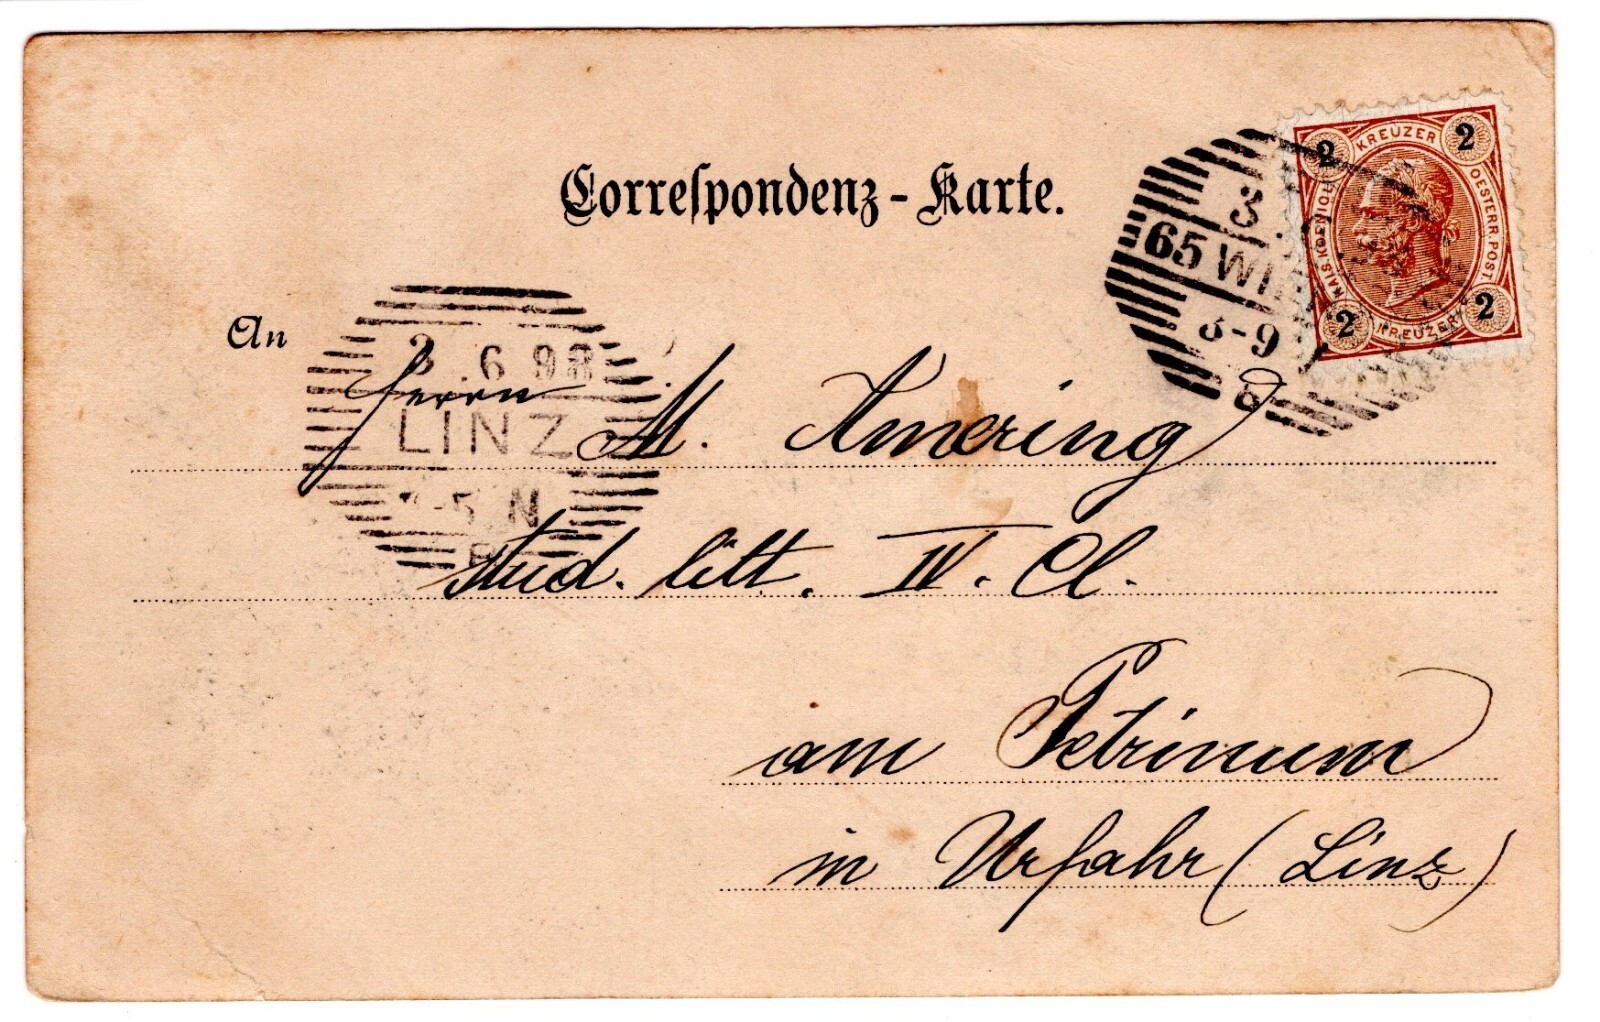 Correspondenz-Karte.
KREUZER
2 2
KAIS. KOENIGL. OESTERR. POST
2 2
KREUZER
3
65 WI
3-9
An
3 6 98
LINZ
-5 N
Herrn M. Amering
stud. litt. IV. Cl.
am Petrinum
in Urfahr (Linz)